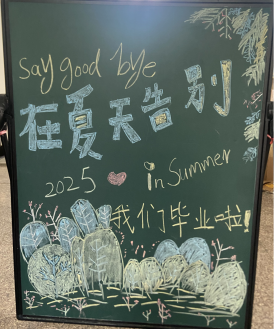 say good bye
在夏天告别
in Summer
2025
我们毕业啦!